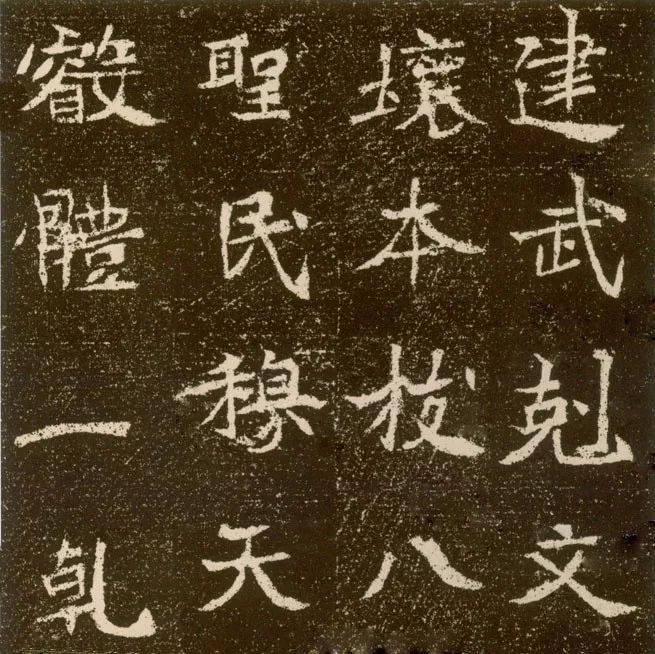 建武剋文
壤本枝八
聖民穆天
叡體一乹